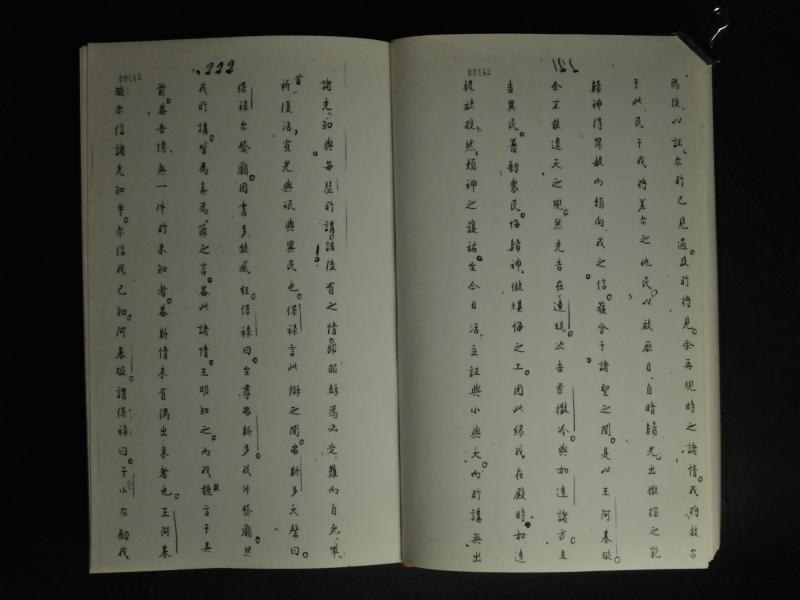 00442
為役以証尔所已見過及所將見余再現時之諸情我將救尔
于此民于我將差尔之他民以啟厥目自暗歸光出撒探之能
歸神得罪赦而賴向我之信獲分于諸聖之間是以王阿基
余不敢違天之現然先告在達瑪次告柔撒冷與如達諸方且
告異民普勸衆民悔歸神做堪悔之工因此緣我在殿時如達
捉欲殺然賴神之護祐至今日活立証與小與大而所講無出
00443
222
諸先知與每瑟所講該後有之情即耶穌為必受難而自死
首祈復活宣光與民與異民也保祿言此辯之間弗斯多大聲曰
保祿尔發癲因書多致風狂保祿曰至尊弗斯多我非發癲然
我所講皆為真為節之言蓋此諸情王明知之而我敢提言于其
前蓋吾情無一件所未知者蓋斯情未有 出來者也王阿基
尔信諸先知乎尔信我已知阿基 謂保祿曰于小尔勸我